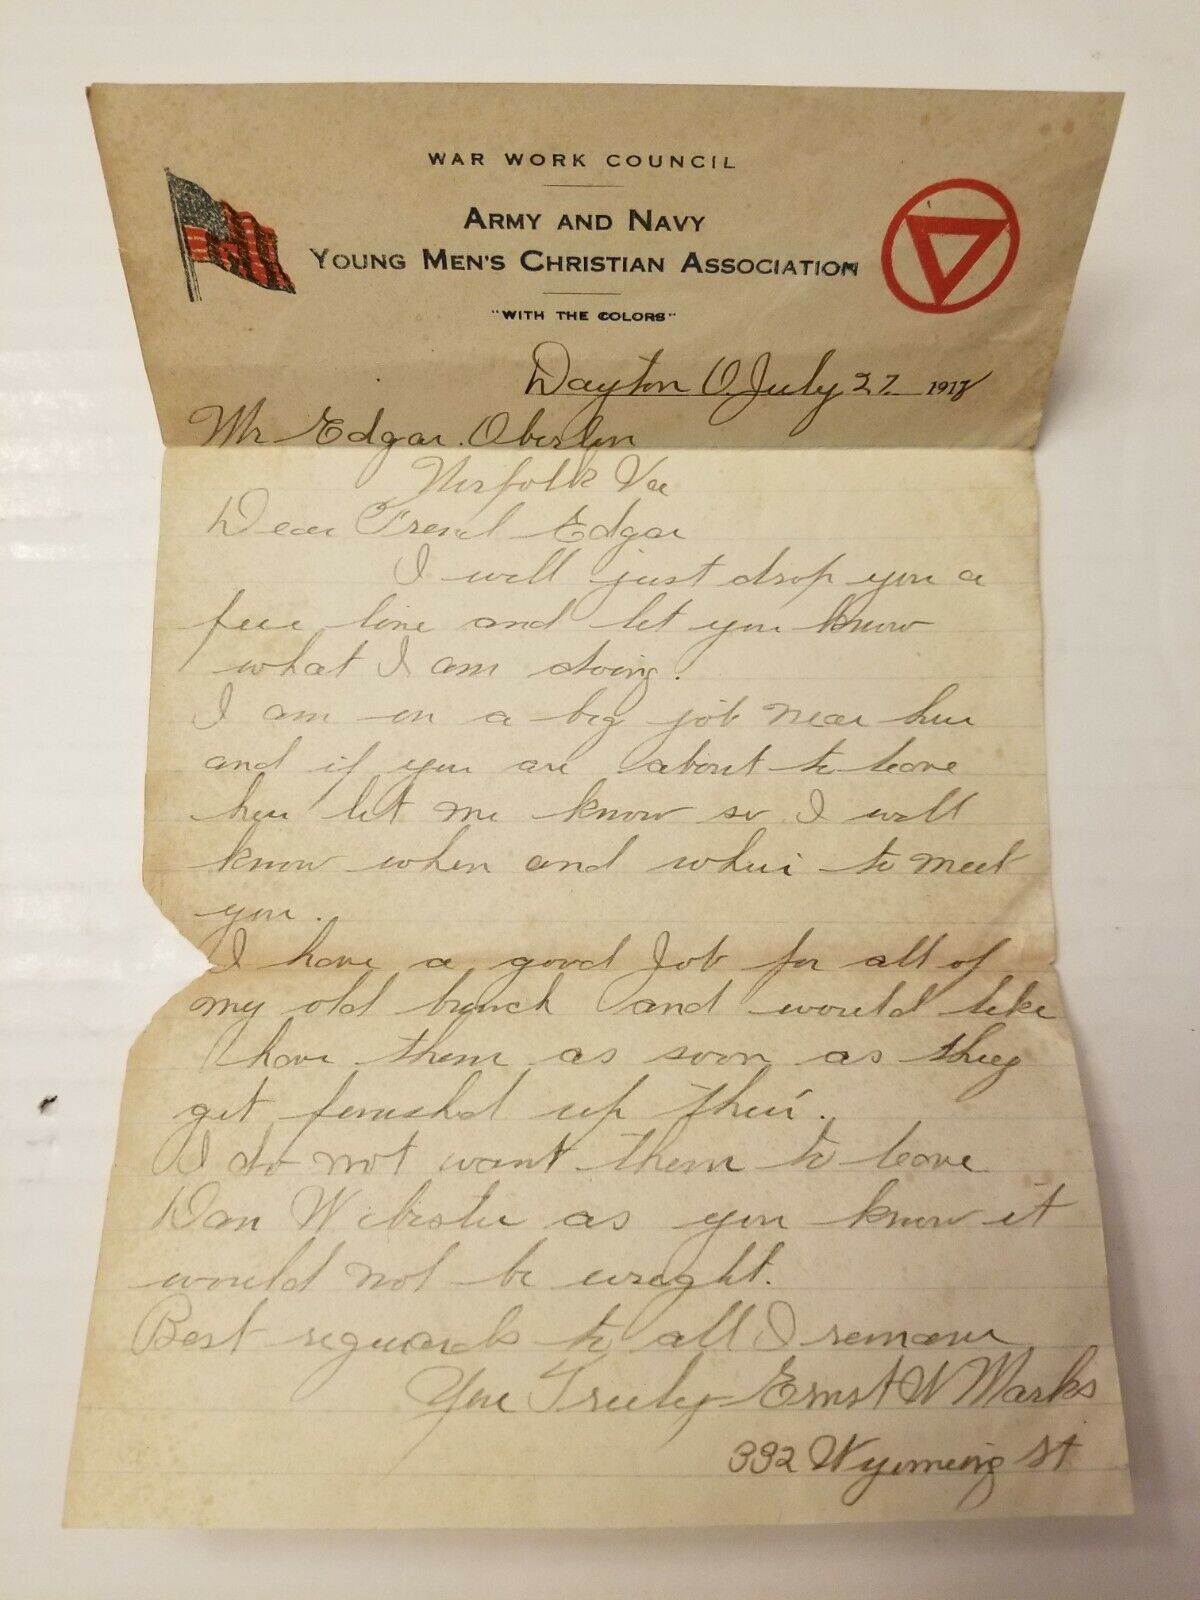 WAR WORK COUNCIL
ARMY AND NAVY
YOUNG MEN'S CHRISTIAN ASSOCIATION
"WITH THE COLORS"
Dayton O. July 27 1918
Mr Edgar. Oberlin
Norfolk Va
Dear Frend Edgar
I will just drop you a
few line and let you know
what I am doing.
I am on a big job near her
and if you are about to leave
her let me know so I will
know when and wher to meet
you.
I have a good Job for all of
my old bunch and would like
have them as soon as they
get finishd up ther.
I do not want them to leave
Dan Wibister as you know it
would not be wright.
Best reguards to all I remain
You Truly Ernst W Marks
332 Wyoming St